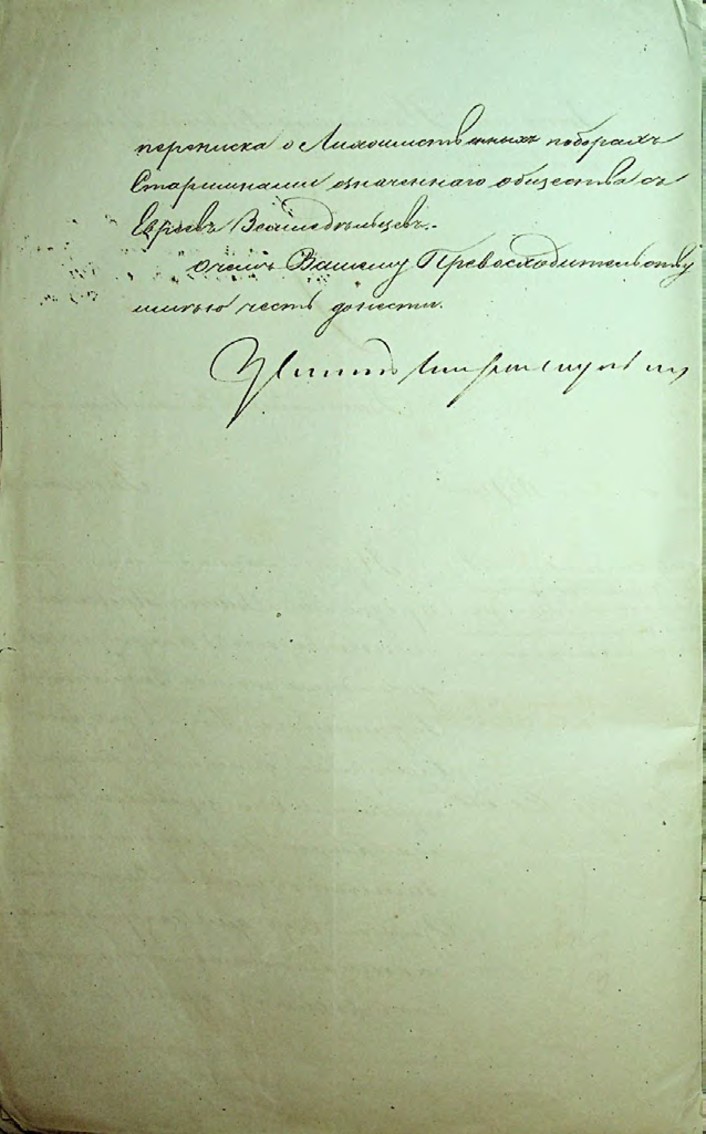 переписка о Лихоимственныхъ поборахъ
Старшинами означеннаго общества съ
Евреевъ Земледѣльцевъ.
О чемъ Вашему Превосходительству
имѣю честь донести.